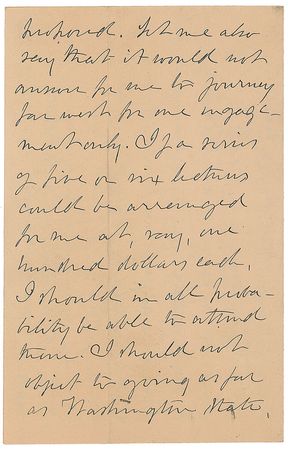 proposed. Let me also
say that it would not
answer for me to journey
far west for one engage-
ment only. If a series
of five or six lectures
could be arranged
for me at, say, one
hundred dollars each,
I should in all proba-
bility be able to attend
them. I should not
object to going as far
as Washington State,